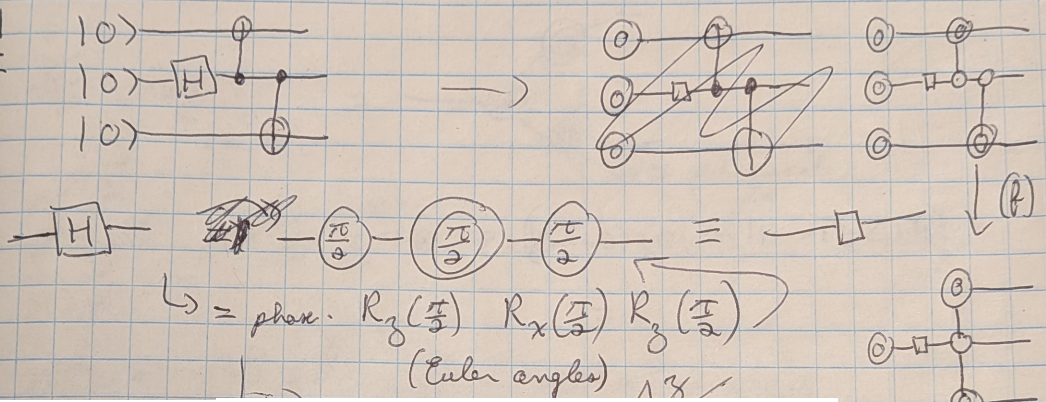 |0⟩
|0⟩ H →
|0⟩
(f)
H π/2 π/2 π/2 ≡
↳ = phase. R_z(π/2) R_x(π/2) R_z(π/2)
(Euler angles)